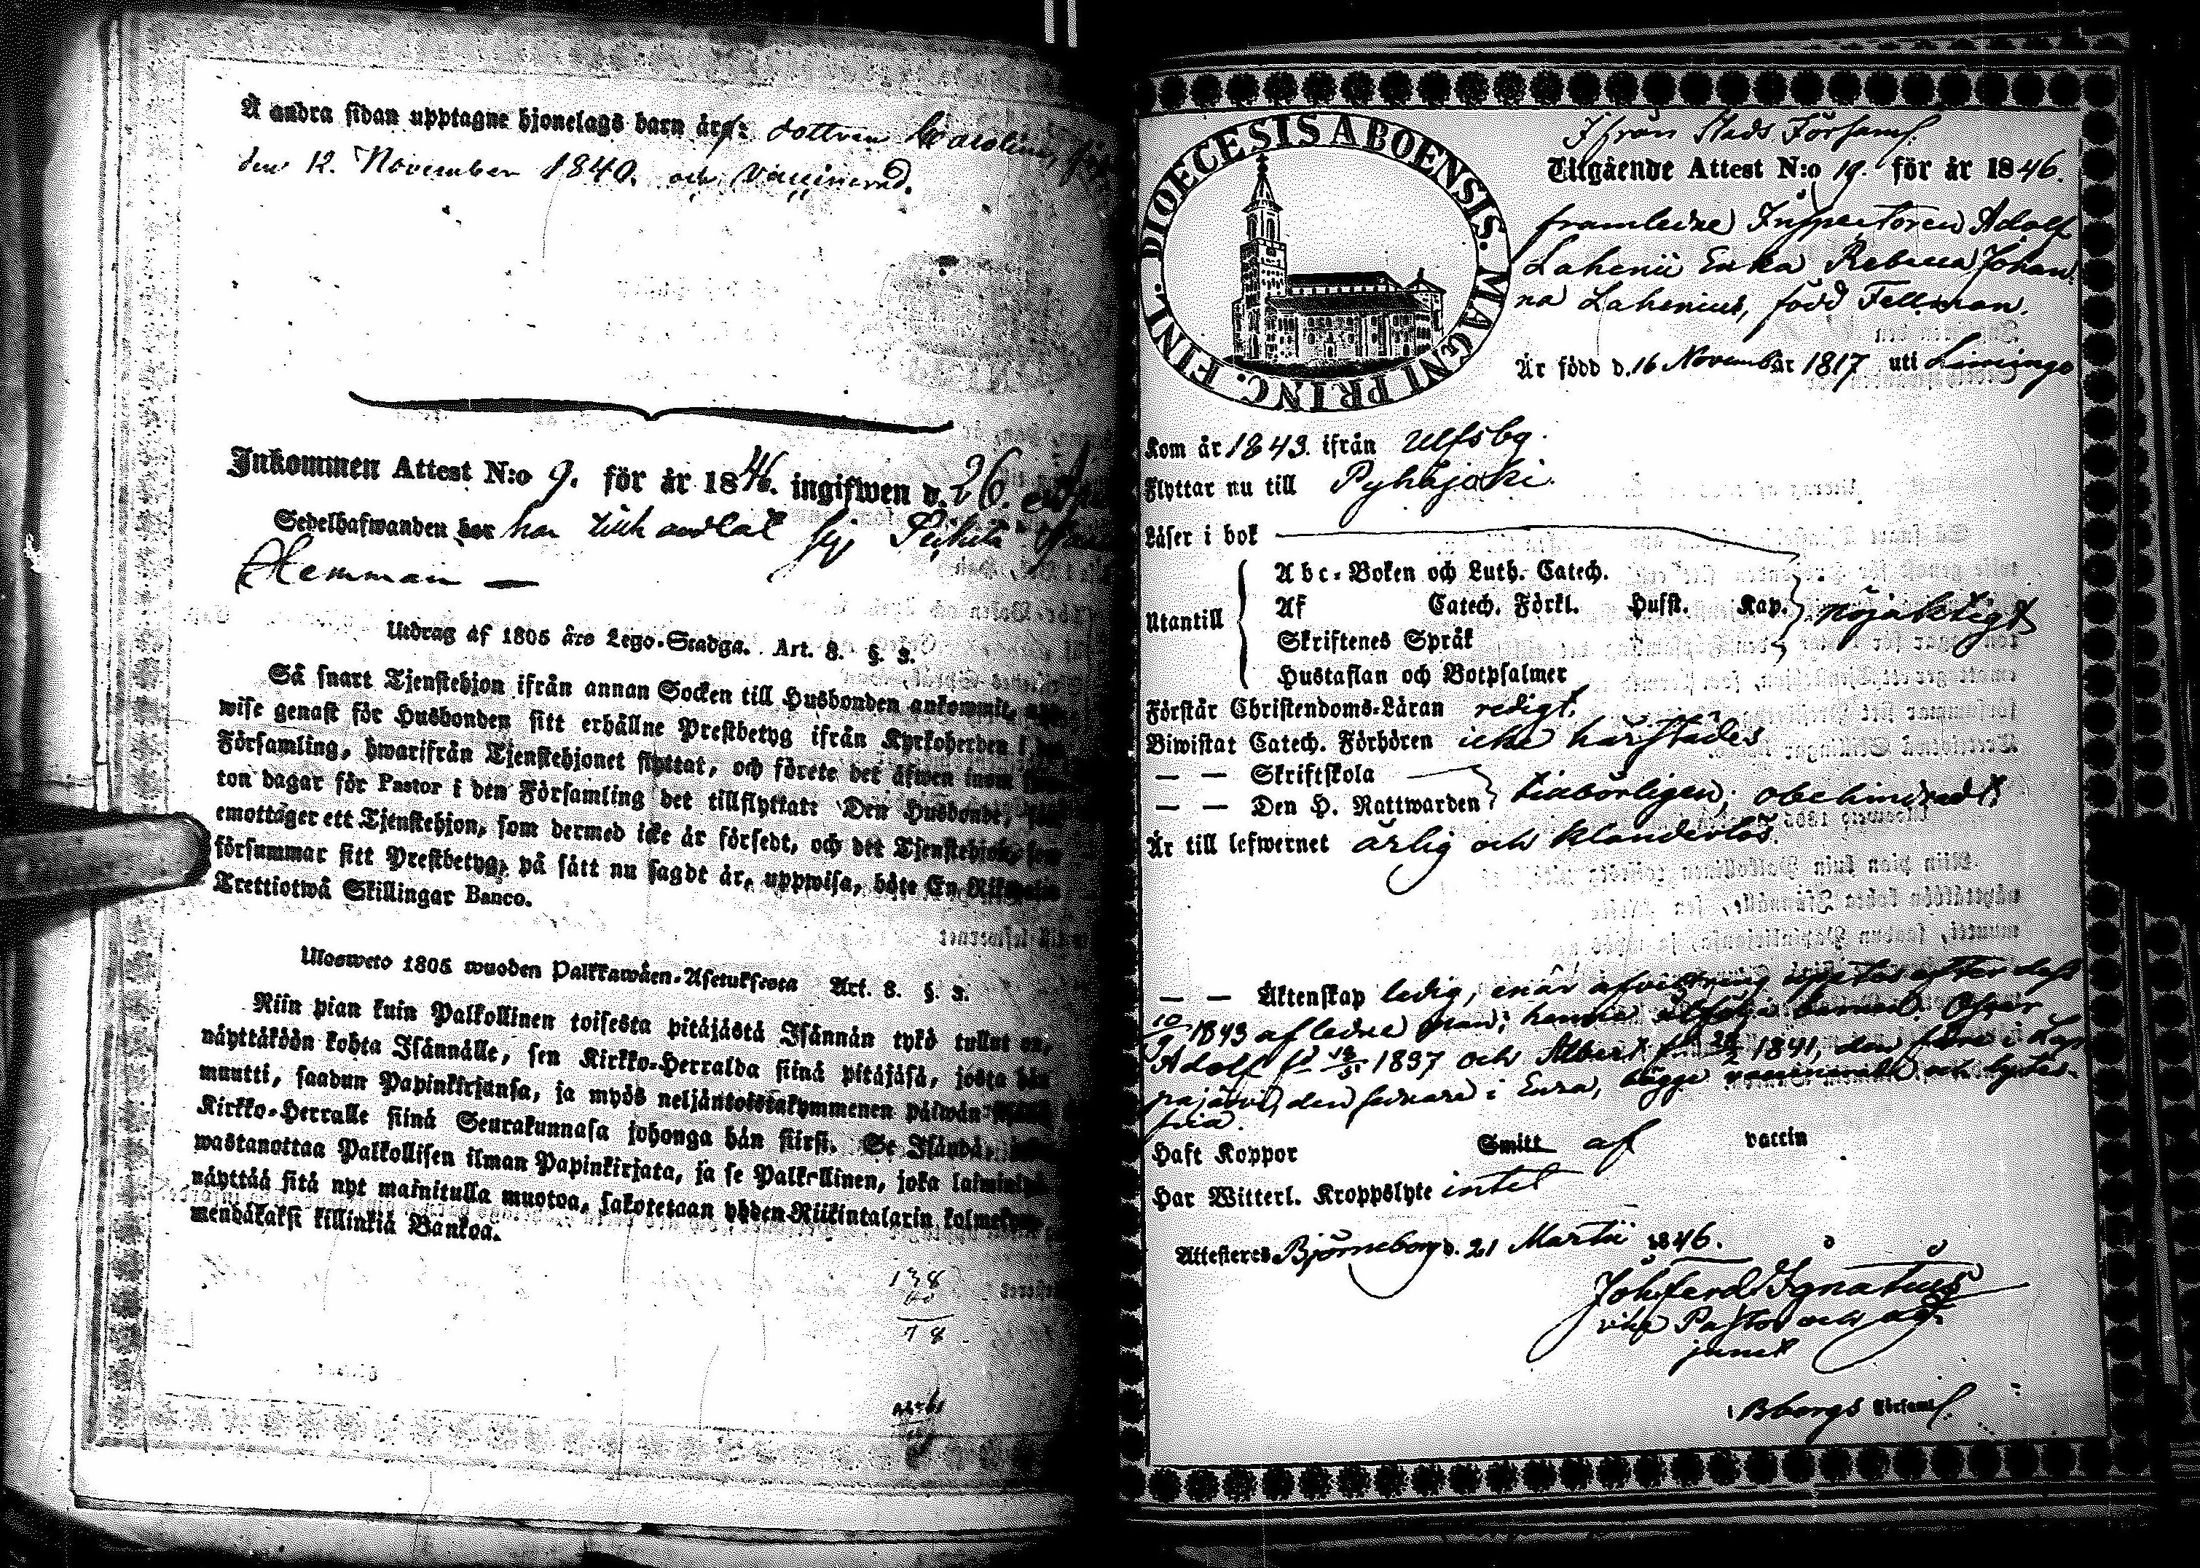 Å andra sidan upptagne hjonelags barn är: dottren Carolina
den 12. November 1840. och Vaccinerad.
Inkommen Attest N:o 9. för år 1846. ingifwen d. 26.
Sedelhafwanden har
Hemman —
Utdrag af 1805 års Lego-Stadga. Art. 8. §. 3.
Så snart Tjenstehjon ifrån annan Socken till Husbonden ankommit,
wise genast för Husbonden sitt erhållne Prestbetyg ifrån Kyrkoherden i
Församling, hwarifrån Tjenstehjonet flyttat, och förete det äfwen inom
ton dagar för Pastor i den Församling det tillflyttat: Den Husbonde,
emottager ett Tjenstehjon, som dermed icke är försedt, och det Tjenstehjon,
försummar sitt Prestbetyg, på sätt nu sagdt är, uppwisa, böte En
Trettiotwå Skillingar Banco.
Ulosweto 1805 wuoden Palkkawäen-Asetuksesta Art. 8. §. 3.
Niin pian kuin Palkollinen toisesta pitäjästä Isännän tykö tullut on,
näyttäköön kohta Isännälle, sen Kirkko-Herralda siinä pitäjäsä, josta hän
muutti, saadun Papinkirjansa, ja myös neljäntoistakymmenen päiwän
Kirkko-Herralle siinä Seurakunnasa johonga hän siirsi. Se Isändä,
wastanottaa Palkollisen ilman Papinkirjata, ja se Palkollinen, joka
näyttää sitä nyt mainitulla muotoa, sakotetaan yhden Riikintalarin
mendäkaksi killinkiä Bankoa.
138
60
78
DIOECESIS ABOENSIS. MAGNI PRINC. FINL.
Ifrån Stads Församl:
Utgående Attest N:o 19. för år 1846.
framledne Inspectoren Adolf
Lahenii Enka Rebecca Johan-
na Lahenius, född Fellman.
Är född d. 16 November 1817 uti Limingo
Kom år 1843. ifrån Ulfsby.
Flyttar nu till Pyhäjoki.
Läser i bok
Utantill
Abc-Boken och Luth. Catech.
Af Catech. Förkl. Husst. Kap. nöjaktigt
Skriftenes Språk
Hustaflan och Botpsalmer
Förstår Christendoms-Läran redigt.
Biwistat Catech. Förhören icke härstädes
— — Skriftskola
— — Den H. Nattwarden tillbörligen; obehindradt.
Är till lefwernet ärlig och klanderlös.
— — Äktenskap ledig, enär afvittring efter dess
10/9 1843 afledne man; henne barnen
Adolf 1837 och Albert 1841, den förre i
den sednare i Eura, bägge och lytes-
fria.
Haft Koppor Smitt af vaccin
Har Witterl. Kroppslyte intet
Attesteres Björneborg d. 21 Martii 1846.
Joh. Ferd. Ignatius
vice Pastor och ad-
junct
i Bborgs Församl.